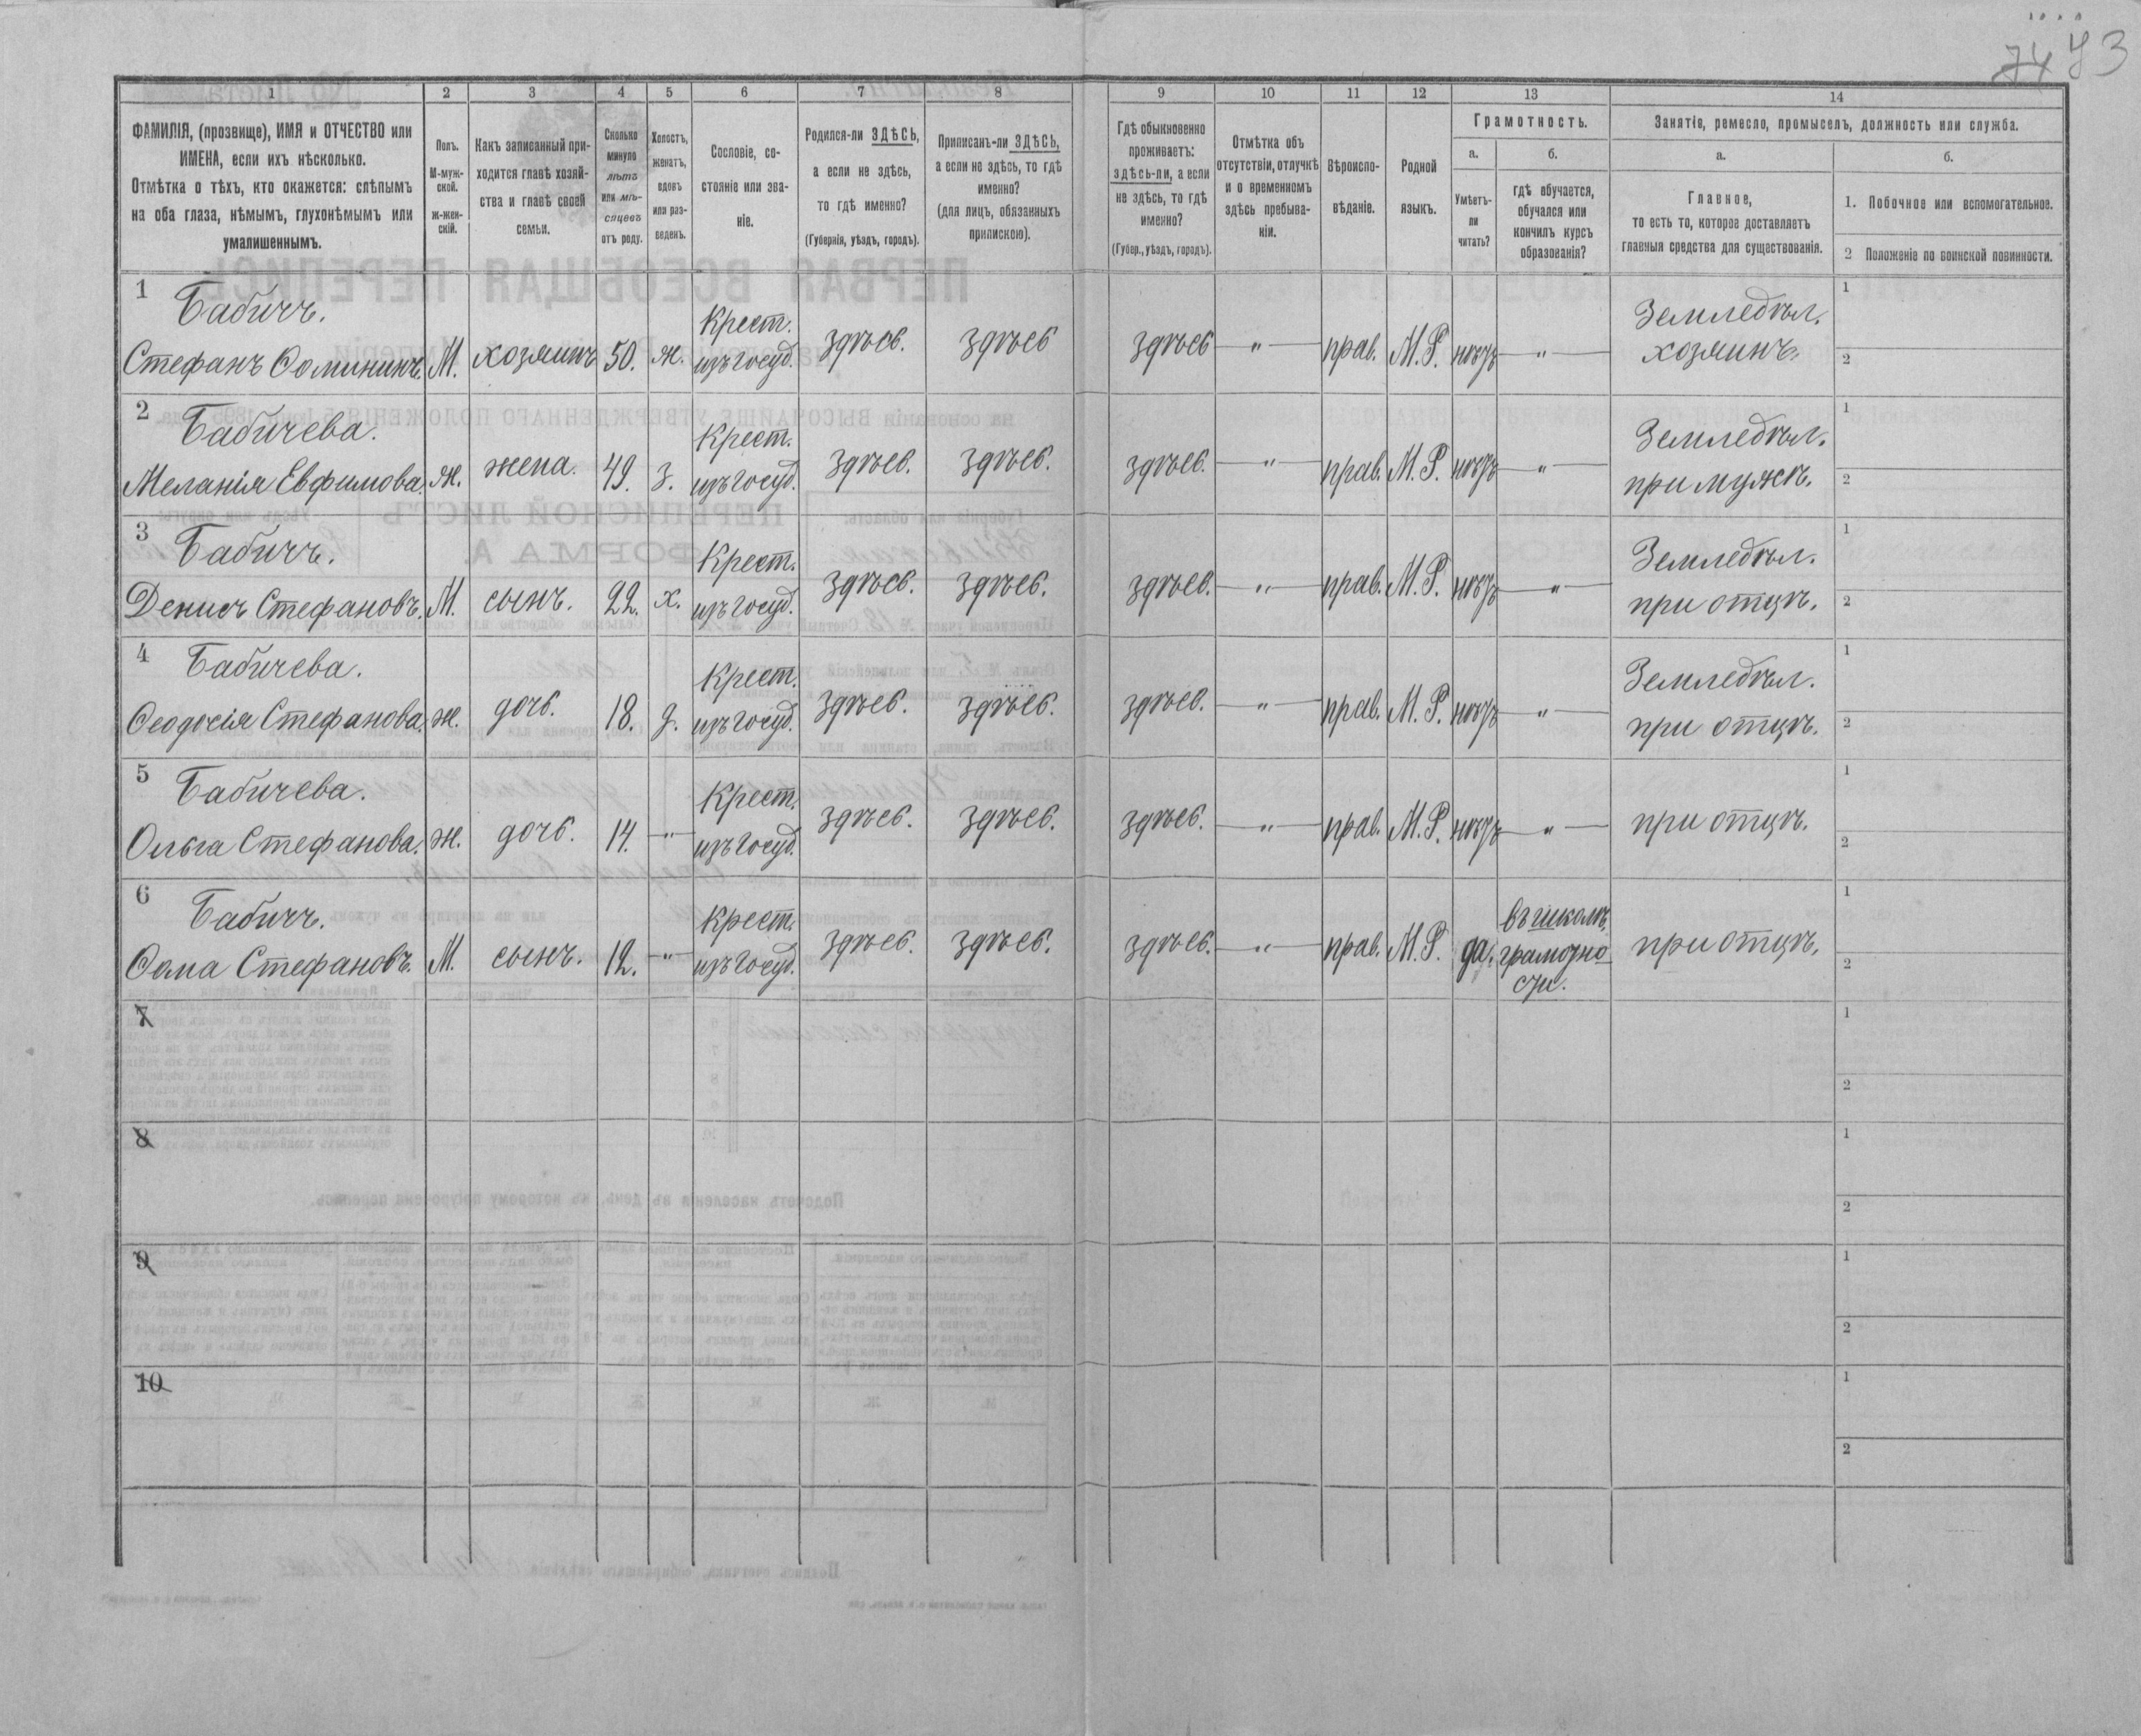 74 73
1 2 3 4 5 6 7 8 9 10 11 12 13 14
ФАМИЛІЯ, (прозвище), ИМЯ и ОТЧЕСТВО или
ИМЕНА, если ихъ нѣсколько.
Отмѣтка о тѣхъ, кто окажется: слѣпымъ
на оба глаза, нѣмымъ, глухонѣмымъ или
умалишеннымъ.
Полъ.
М-муж-
ской.
ж-жен-
скій.
Какъ записанный при-
ходится главѣ хозяй-
ства и главѣ своей
семьи.
Сколько
минуло
лѣтъ
или мѣ-
сяцевъ
отъ роду.
Холостъ,
женатъ,
вдовъ
или раз-
веденъ.
Сословіе, со-
стояніе или зва-
ніе.
Родился-ли ЗДѢСЬ,
а если не здѣсь,
то гдѣ именно?
(Губернія, уѣздъ, городъ).
Приписанъ-ли ЗДѢСЬ,
а если не здѣсь, то гдѣ
именно?
(для лицъ, обязанныхъ
припискою).
Гдѣ обыкновенно
проживаетъ:
здѣсь-ли, а если
не здѣсь, то гдѣ
именно?
(Губер., уѣздъ, городъ).
Отмѣтка объ
отсутствіи, отлучкѣ
и о временномъ
здѣсь пребыва-
ніи.
Вѣроиспо-
вѣданіе.
Родной
языкъ.
Грамотность.
а.
Умѣетъ-
ли
читать?
б.
гдѣ обучается,
обучался или
кончилъ курсъ
образованія?
Занятіе, ремесло, промыселъ, должность или служба.
а.
Главное,
то есть то, которое доставляетъ
главныя средства для существованія.
б.
1. Побочное или вспомогательное.
2 Положеніе по воинской повинности.
1 Бабичъ. Крест. Земледѣл. 1
Стефанъ Ѳоминичъ. М. хозяинъ 50. ж. изъ госуд. здѣсь. здѣсь здѣсь — " — прав. М. Р. нѣтъ — " — хозяинъ. 2
2 Бабичева. Крест. Земледѣл. 1
Меланія Евфимова. ж. жена. 49. з. изъ госуд. здѣсь. здѣсь. здѣсь. — " — прав. М. Р. нѣтъ — " — при мужѣ. 2
3 Бабичъ. Крест. Земледѣл. 1
Денисъ Стефановъ. М. сынъ. 22. х. изъ госуд. здѣсь. здѣсь. здѣсь. — " — прав. М. Р. нѣтъ — " — при отцѣ. 2
4 Бабичева. Крест. Земледѣл. 1
Ѳеодосія Стефанова. ж. дочь. 18. д. изъ госуд. здѣсь. здѣсь. здѣсь. — " — прав. М. Р. нѣтъ — " — при отцѣ. 2
5 Бабичева. Крест. 1
Ольга Стефанова. ж. дочь. 14. — " — изъ госуд. здѣсь. здѣсь. здѣсь. — " — прав. М. Р. нѣтъ — " — при отцѣ. 2
6 Бабичъ. Крест. въ школѣ 1
Ѳома Стефановъ. М. сынъ. 12. — " — изъ госуд. здѣсь. здѣсь. здѣсь. — " — прав. М. Р. да. грамотно- при отцѣ. 2
сти.
7 1
2
8 1
2
9 1
2
10 1
2